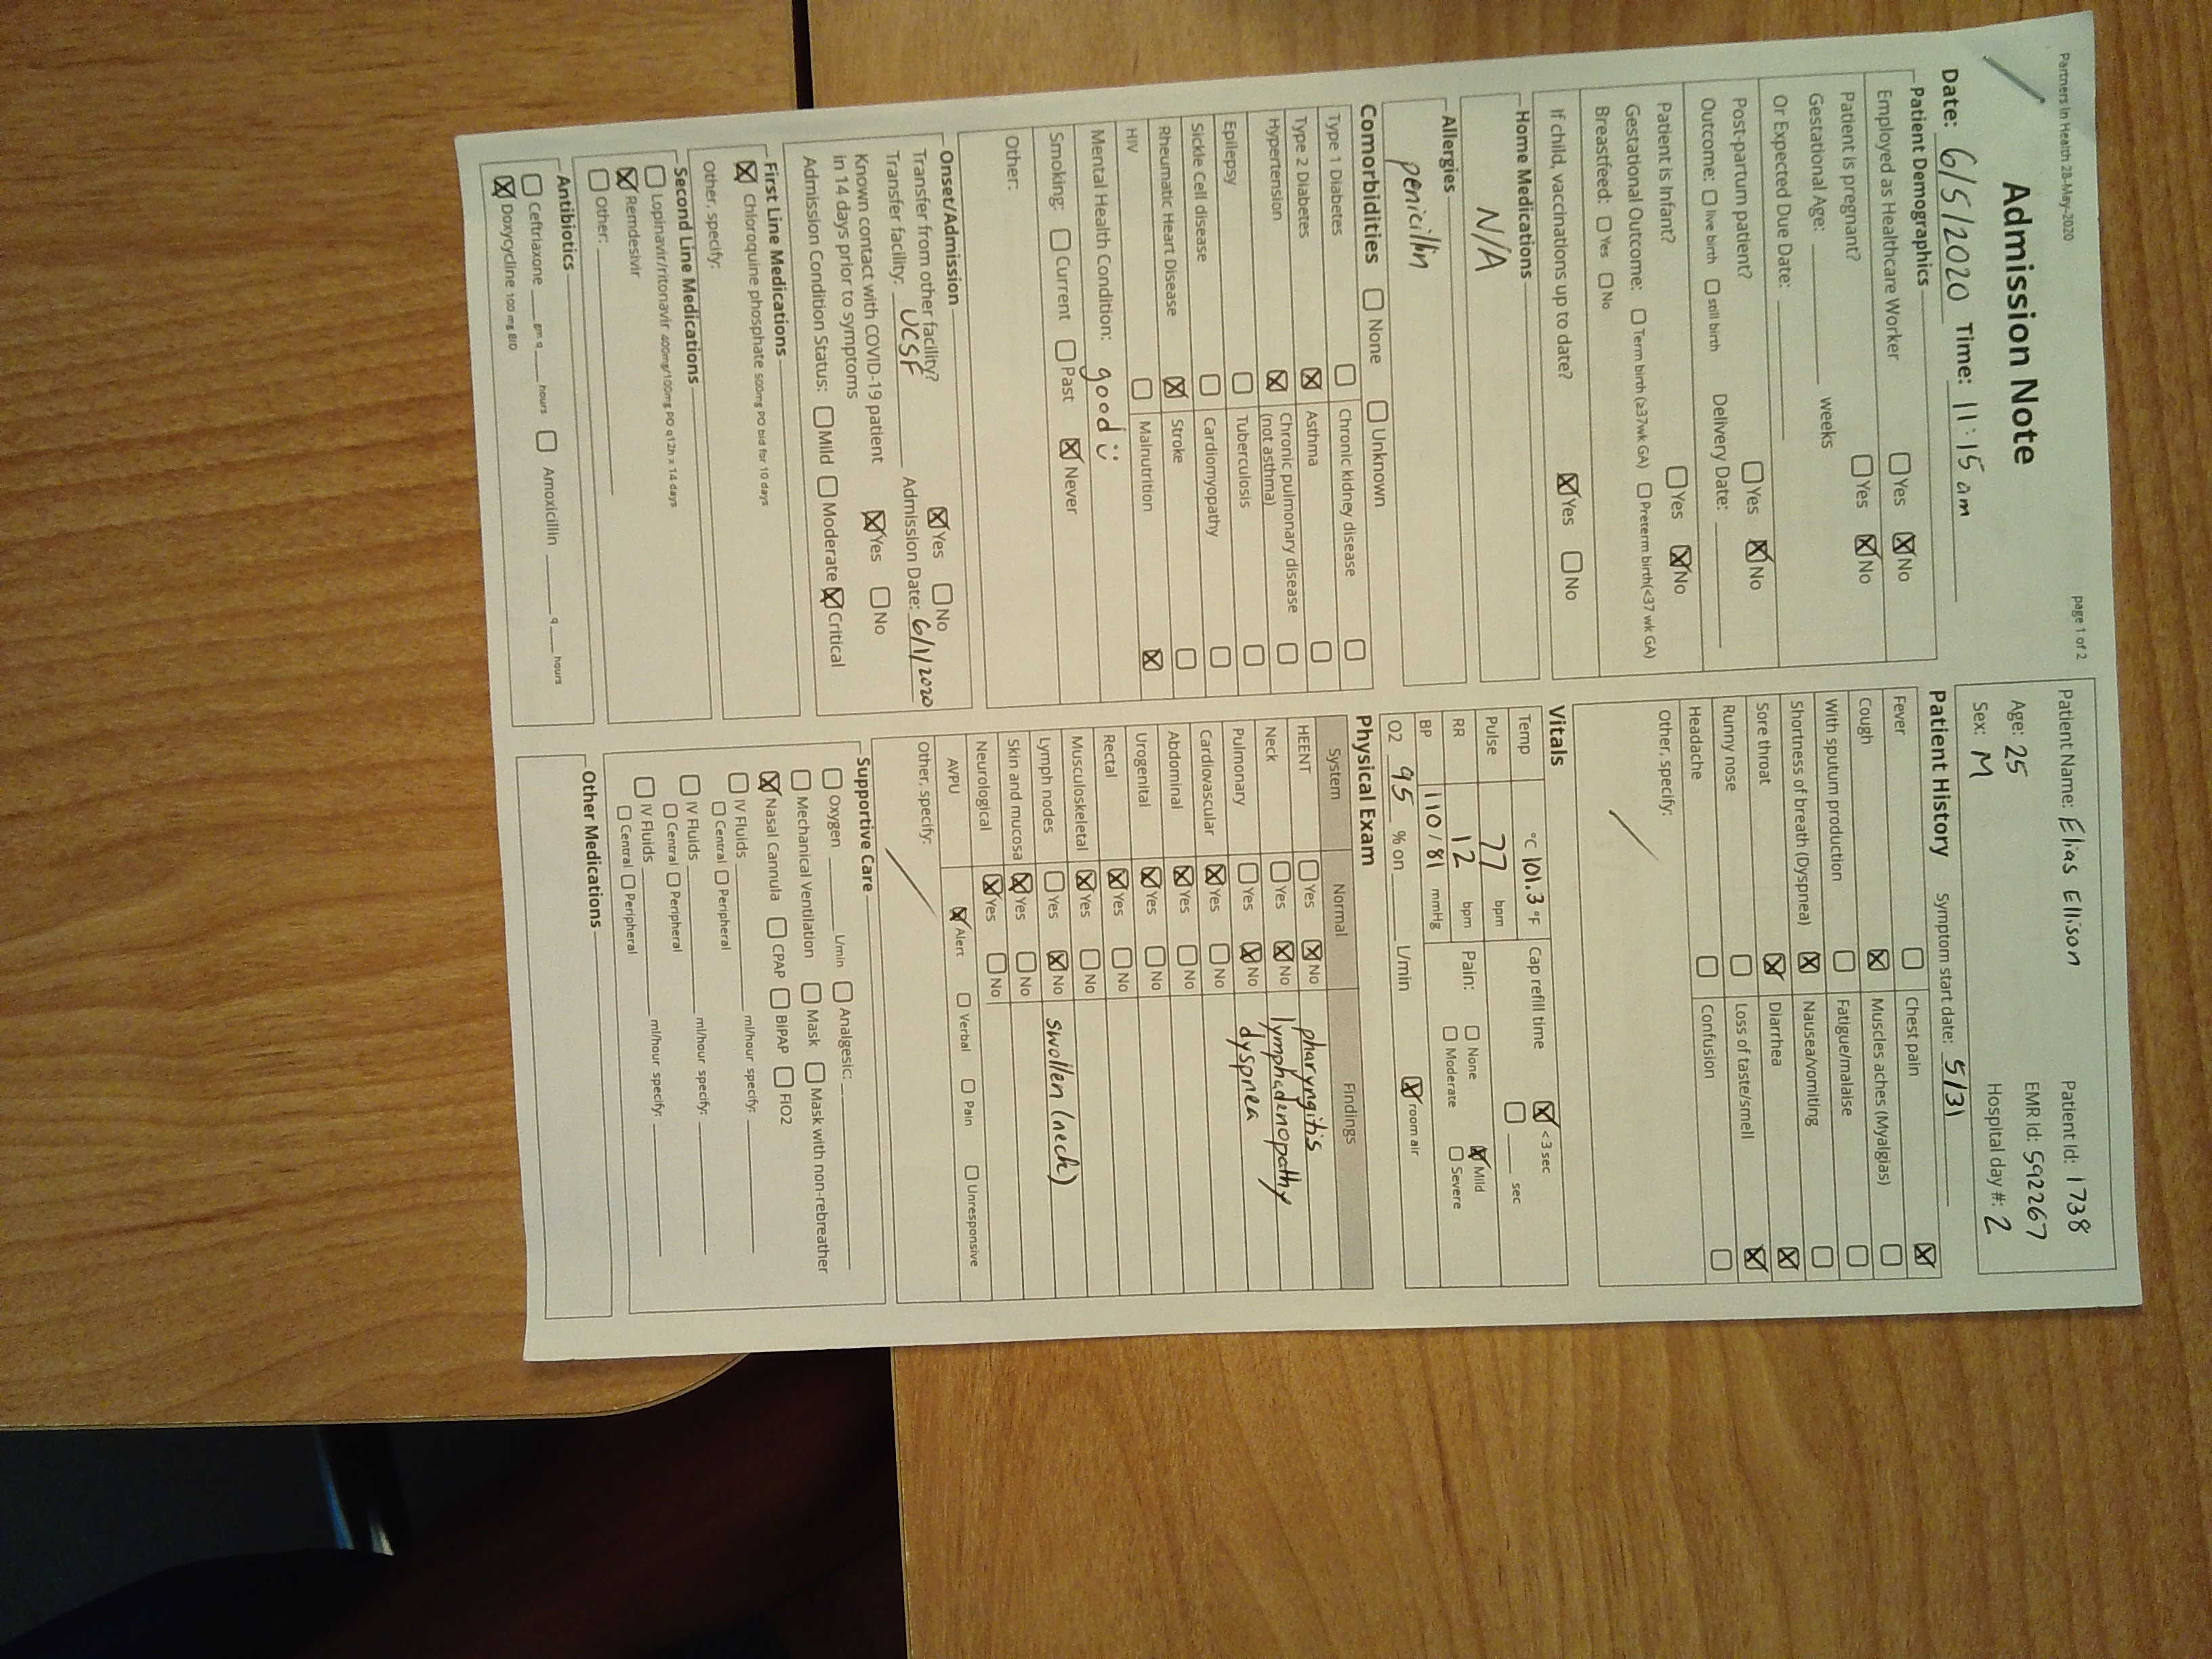 Partners In Health 28-May-2020
page 1 of 2
Admission Note
Date: 6/5/2020 Time: 11:15 am
Patient Demographics
Employed as Healthcare Worker ☐ Yes ☒ No
Patient is pregnant? ☐ Yes ☒ No
Gestational Age: ______ weeks
Or Expected Due Date: ______
Post-partum patient? ☐ Yes ☒ No
Outcome: ☐ live birth ☐ still birth Delivery Date: ______
Patient is Infant? ☐ Yes ☒ No
Gestational Outcome: ☐ Term birth (≥37wk GA) ☐ Preterm birth(<37 wk GA)
Breastfeed: ☐ Yes ☐ No
If child, vaccinations up to date? ☒ Yes ☐ No
Home Medications
N/A
Allergies
penicillin
Comorbidities ☐ None ☐ Unknown
Type 1 Diabetes ☐ Chronic kidney disease ☐
Type 2 Diabetes ☒ Asthma ☐
Hypertension ☒ Chronic pulmonary disease (not asthma) ☐
Epilepsy ☐ Tuberculosis ☐
Sickle Cell disease ☐ Cardiomyopathy ☐
Rheumatic Heart Disease ☒ Stroke ☐
HIV ☐ Malnutrition ☒
Mental Health Condition: good :)
Smoking: ☐ Current ☐ Past ☒ Never
Other:
Onset/Admission
Transfer from other facility? ☒ Yes ☐ No
Transfer facility: UCSF Admission Date: 6/1/2020
Known contact with COVID-19 patient
in 14 days prior to symptoms ☒ Yes ☐ No
Admission Condition Status: ☐ Mild ☐ Moderate ☒ Critical
First Line Medications
☒ Chloroquine phosphate 500mg PO bid for 10 days
Other, specify:
Second Line Medications
☐ Lopinavir/ritonavir 400mg/100mg PO q12h x 14 days
☒ Remdesivir
☐ Other: ______
Antibiotics
☐ Ceftriaxone ____ gm q ____ hours ☐ Amoxicillin ____ q ____ hours
☒ Doxycycline 100 mg BID
Patient Name: Elias Ellison Patient Id: 1738
Age: 25 EMR Id: 592267
Sex: M Hospital day #: 2
Patient History Symptom start date: 5/31
Fever ☐ Chest pain ☒
Cough ☒ Muscles aches (Myalgias) ☐
With sputum production ☐ Fatigue/malaise ☐
Shortness of breath (Dyspnea) ☒ Nausea/vomiting ☐
Sore throat ☒ Diarrhea ☒
Runny nose ☐ Loss of taste/smell ☒
Headache ☐ Confusion ☐
Other, specify:
Vitals
Temp °C 101.3 °F Cap refill time ☒ <3 sec
☐ ____ sec
Pulse 77 bpm
RR 12 bpm Pain: ☐ None ☒ Mild
BP 110/81 mmHg ☐ Moderate ☐ Severe
O2 95 % on ____ L/min ☒ room air
Physical Exam
System Normal Findings
HEENT ☐ Yes ☒ No pharyngitis
Neck ☐ Yes ☒ No lymphadenopathy
Pulmonary ☐ Yes ☒ No dyspnea
Cardiovascular ☒ Yes ☐ No
Abdominal ☒ Yes ☐ No
Urogenital ☒ Yes ☐ No
Rectal ☒ Yes ☐ No
Musculoskeletal ☒ Yes ☐ No
Lymph nodes ☐ Yes ☒ No swollen (neck)
Skin and mucosa ☒ Yes ☐ No
Neurological ☒ Yes ☐ No
AVPU ☒ Alert ☐ Verbal ☐ Pain ☐ Unresponsive
Other, specify:
Supportive Care
☐ Oxygen ____ L/min ☐ Analgesic: ______
☐ Mechanical Ventilation ☐ Mask ☐ Mask with non-rebreather
☒ Nasal Cannula ☐ CPAP ☐ BiPAP ☐ FiO2
☐ IV Fluids ______ ml/hour specify: ______
☐ Central ☐ Peripheral
☐ IV Fluids ______ ml/hour specify: ______
☐ Central ☐ Peripheral
☐ IV Fluids ______ ml/hour specify: ______
☐ Central ☐ Peripheral
Other Medications